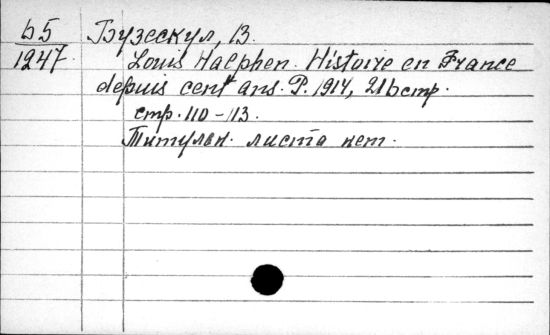 Б5 Бузескул, В.
1247. Louis Halphen. Histoire en France
depuis cent ans. P. 1914, 216 стр.
стр. 110-113.
Титульн. листа нет.